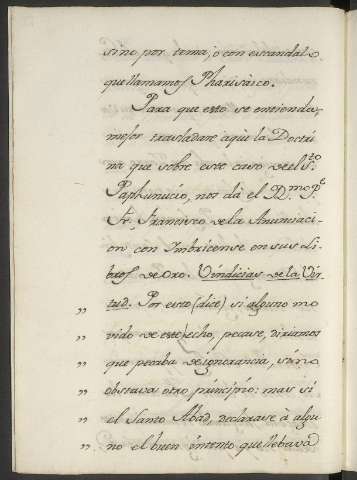 sino por tema, o con escandalo
que llamamos Pharisaico.
Para que esto se entienda,
mejor trasladare aqui la Doctri
na que sobre este caso de el S.to
Paphunucio, nos dà el D.mo P.e
Fr. Francisco de la Anunciaci-
on con Imbricense en sus Li-
bros de Oro. Vindicias de la Vir-
tud. Por esto (dice) si alguno mo
„ vido de este echo, pecase, diriamos
„ que pecaba de ignorancia, si no
„ obstava otro principio: mas si
„ el Santo Abad, declarase à algu
„ no el buen intento que llebava